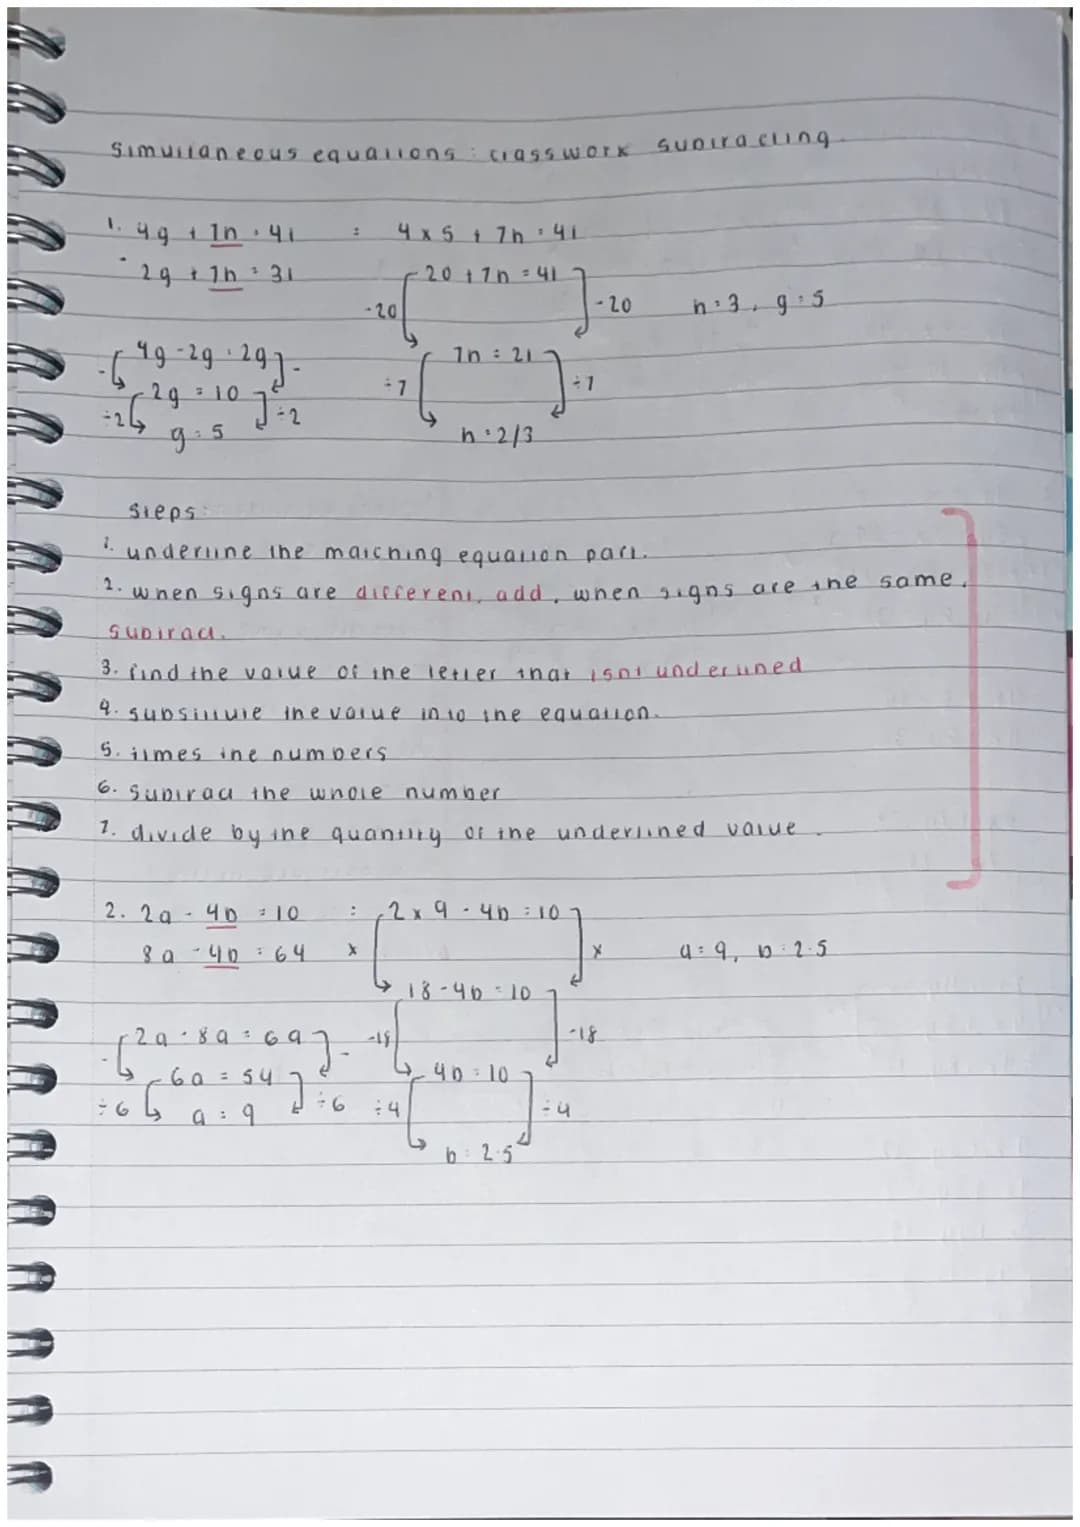 simultaneous equations : classwork subtracting.
1. 4g + 7h = 41 : 4 x 5 + 7h = 41
- 2g + 7h = 31 20 + 7h = 41
-20 -20 h = 3, g = 5
- 4g - 2g = 2g - 7h = 21
2g = 10 ÷7 ÷7
÷2 g = 5 ÷2 h = 2/3
steps:
1. underline the matching equation part.
2. when signs are different, add, when signs are the same,
subtract.
3. find the value of the letter that isnt underlined
4. subsititute the value into the equation.
5. times the numbers
6. subtract the whole number
7. divide by the quantity of the underlined value.
2. 2a - 4b = 10 : 2 x 9 - 4b = 10
8a - 4b = 64 x x a = 9, b = 2.5
18 - 4b = 10
- 2a - 8a = 6a - -18 -18
6a = 54 4b = 10
÷6 a = 9 ÷6 ÷4 ÷4
b = 2.5